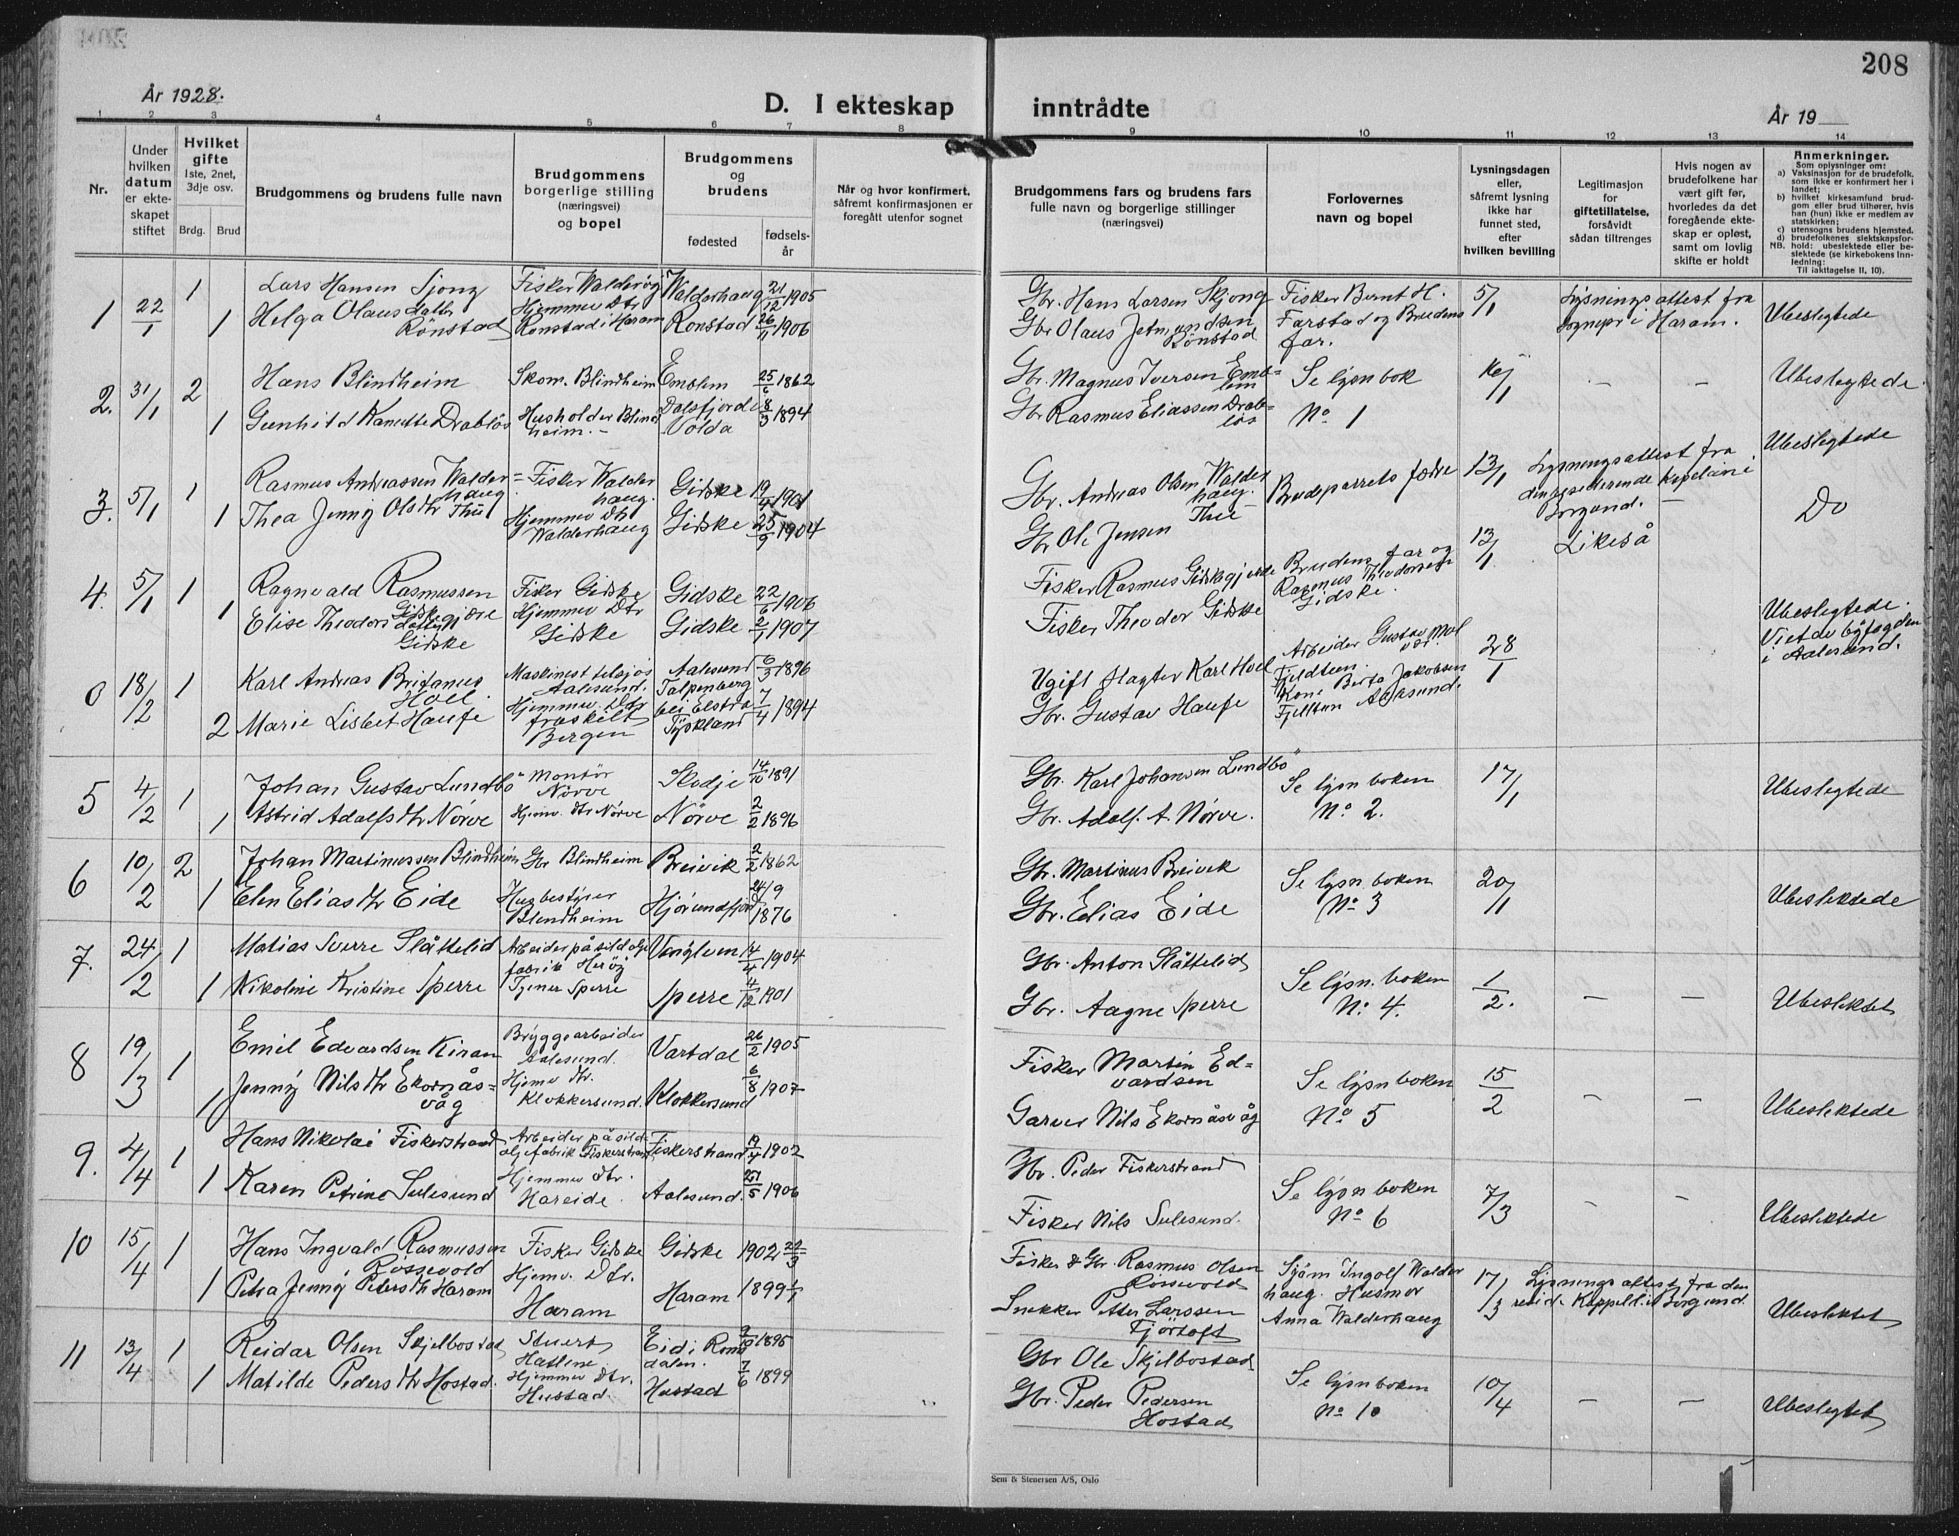 208
År 1928.
D. I ekteskap inntrådte
År 19
1 2 3 4 5 6 7 8 9 10 11 12 13 14
Nr.
Under hvilken datum er ekteskapet stiftet
Hvilket gifte
1ste, 2net, 3dje osv.
Brdg. Brud
Brudgommens og brudens fulle navn
Brudgommens borgerlige stilling (næringsvei) og bopel
Brudgommens og brudens
fødested
fødselsår
Når og hvor konfirmert, såfremt konfirmasjonen er foregått utenfor sognet
Brudgommens fars og brudens fars fulle navn og borgerlige stillinger (næringsvei)
Forlovernes navn og bopel
Lysningsdagen eller, såfremt lysning ikke har funnet sted, efter hvilken bevilling
Legitimasjon for giftetillatelse, forsåvidt sådan tiltrenges
Hvis nogen av brudefolkene har vært gift før, hvorledes da det foregående ekteskap er opløst, samt om lovlig skifte er holdt
Anmerkninger.
Som oplysninger om:
a) Vaksinasjon for de brudefolk, som ikke er konfirmert her i landet;
b) hvilket kirkesamfund brudgom eller brud tilhører, hvis han (hun) ikke er medlem av statskirken;
c) utensogns brudens hjemsted.
d) brudefolkenes slektskapsforhold: ubeslektede eller beslektede (se kirkebokens Innledning:
NB.
Til iakttagelse II, 10).
1 22/1 1 Lars Hansen Sjong Fisker Walderøy Walderhaug 21/12 1905 Gbr. Hans Larsen Skjong Fisker Bernt H. 5/1 Lysningsattest fra Ubeslegtede
1 Helga Olausdatr Rönstad Hjemmev Dtr Rönstad i Haram Ronstad 26/11 1906 Gbr Olaus Jetmundsen Rönstad Farstad og Brudens far. sognepr i Haram.
2. 31/1 2 Hans Blindheim Skom. Blindheim Emblem 25/6 1862 Gbr. Magnus Iversen Emblem Se lysn bok — — Ubeslegtede
1 Gunhild Kanutte Drabløs Husholder Blindheim.- Dalsfjorde Volda 8/3 1894 Gbr Rasmus Eliassen Drabløs No 1
3. 5/1 1 Rasmus Andreassen Walderhaug Fisker Walderhaug. Gidske 19/4 1901 Gbr. Andreas Olsen Walderhaug. Brudeparrets fædre 13/1 Lysningsattest fra den residerende kapelan i Borgund. — Ubeslegtede
1 Thea Jenny Olsdtr Thu Hjemmev Dtr Walderhaug Gidske 25/9 1904 Gbr Ole Jensen Thu Do
4. 5/1 1 Ragnvald Rasmussen Gidskegjære Fisker Gidske Gidske 22/6 1906 Fisker Rasmus Gidskegjerde Brudens far og 13/1 Likeså
1 Elise Theodorsdatter Gidske Hjemmev Dtr Gidske Gidske 2/1 1907 Fisker Theodor Gidske Rasmus Theodorsen Gidske. Ubeslegtede.
0 18/2 1 Karl Andreas Britanus Holl Maskinist tilsjøs Aalesund. Aalesund 6/3 1896 Ugift Slagter Karl Holl Arbeider Gustav Fjeldtun. 28/1 Viet av byfogden i Aalesund.
2 Marie Lisbet Haufe Hjemmev. Dtr fraskilt Bergen Talpenberg bei Elstra Tyskland 7/4 1894 Gbr. Gustav Haufe Kone Berta Jakobsen Fjelltun Aalesund.
5 4/2 1 Johan Gustav Lundbö Montör Nörve Skodje 14/10 1891 Gbr. Karl Johansen Lundbö Se lysn boken 17/1 Ubeslegtede
1 Astrid Adolfsdtr Nörve Hjemv. dtr Nörve Nörve 2/2 1896 Gbr. Adolf. A. Nörve. No 2.
6 10/2 2 Johan Martinussen Blindheim Gbr Blindheim Breivik 2/2 1862 Gbr. Martinus Breivik Se lysn. boken 20/1 Ubeslektede
1 Elen Eliasdtr Eide Husbestyrer Blindheim Hjörundfjord 24/9 1876 Gbr. Elias Eide No 3
7. 24/2 1 Matias Sverre Slåttelid Arbeider på sildolje fabrik Herøy Vanylven 14/4 1904 Gbr. Anton Slåttelid Se lysn. boken 1/2. — — Ubeslektet
1 Nikoline Kristine Sperre Tjener Sperre Sperre 4/12 1901 Gbr. Aagne Sperre No. 4.
8 19/3 1 Emil Edvardsen Bryggearbeider Aalesund. Vartdal 26/2 1905 Fisker Martin Edvardsen Se lysn boken 15/2 — — Ubeslektede
1 Jenny Nilsdtr Ekornåsvåg Hjemv dtr. Klokkersund. Klokkersund 6/8 1907 Garver Nils Ekornåsvåg No 5
9. 4/4 1 Hans Nikolai Fiskerstrand Arbeider på sildoljefabrik Fiskerstrand Fiskerstrand 19/4 1902 Gbr. Peder Fiskerstrand Se lysn boken 7/3 — — Ubeslektede
1 Karen Petrine Sulesund Hjemmev dtr. Hareide. Aalesund. 27/5 1906 Fisker Nils Sulesund. No 6
10 15/4 1 Hans Ingvald Rasmussen Rossevold Fisker Gidske Gidske 1902 22/3 Fisker & Gbr. Rasmus Olsen Rossevold Sjöm Ingolf Walderhaug. Husmor 17/3 Lysningsattest fra den resid. Kappel. i Borgund. Ubeslektet
1 Petra Jenny Petersdtr Haram Hjemv. Dtr. Haram Haram 1899 1/7 Snekker Petter Larssen Fjörtoft Anna Walderhaug
11 13/4 1 Reidar Olsen Skjelbostad Stuert Hatlene Eid i Romsdalen. 9/10 1895 Gbr Ole Skjelbostad Se lysn boken 10/4 — — Ubeslegtet
1 Matilde Pedersdtr Hostad. Hjemmev Dtr. Hustad Hustad 7/6 1899 Gbr. Peder Pedersen Hostad No 10
Sem & Stenersen A/S, Oslo